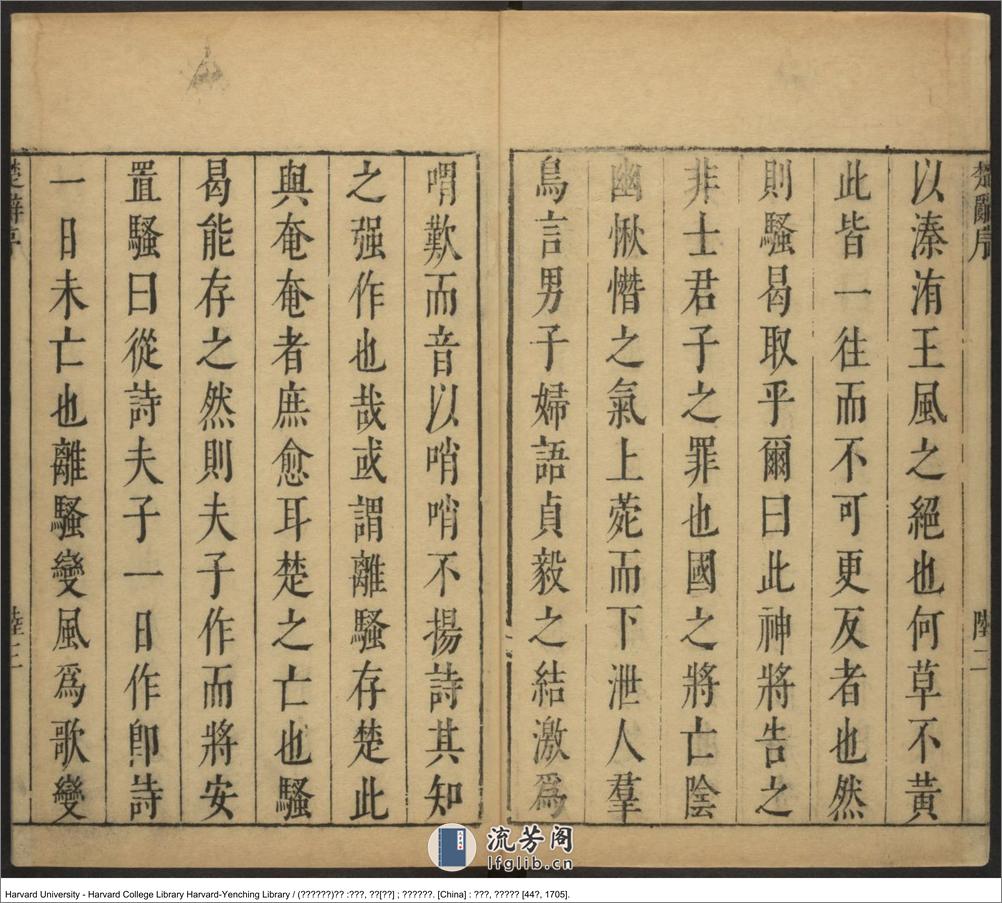 楚辭序
陸二
以溱洧王風之絕也何草不黃
此皆一往而不可更反者也然
則騷曷取乎爾曰此神將告之
非士君子之罪也國之將亡陰
幽愀憯之氣上薨而下泄人羣
鳥言男子婦語貞毅之結激爲
喟歎而音以哨哨不揚詩其知
之强作也哉或謂離騷存楚此
與奄奄者庶愈耳楚之亡也騷
曷能存之然則夫子作而將安
置騷曰從詩夫子一日作卽詩
一日未亡也離騷變風爲歌變
楚辭序
陸三
流芳阁
lfglib.cn
Harvard University - Harvard College Library Harvard-Yenching Library / (??????)?? :???, ??[??] ; ??????. [China] : ???, ????? [44?, 1705].